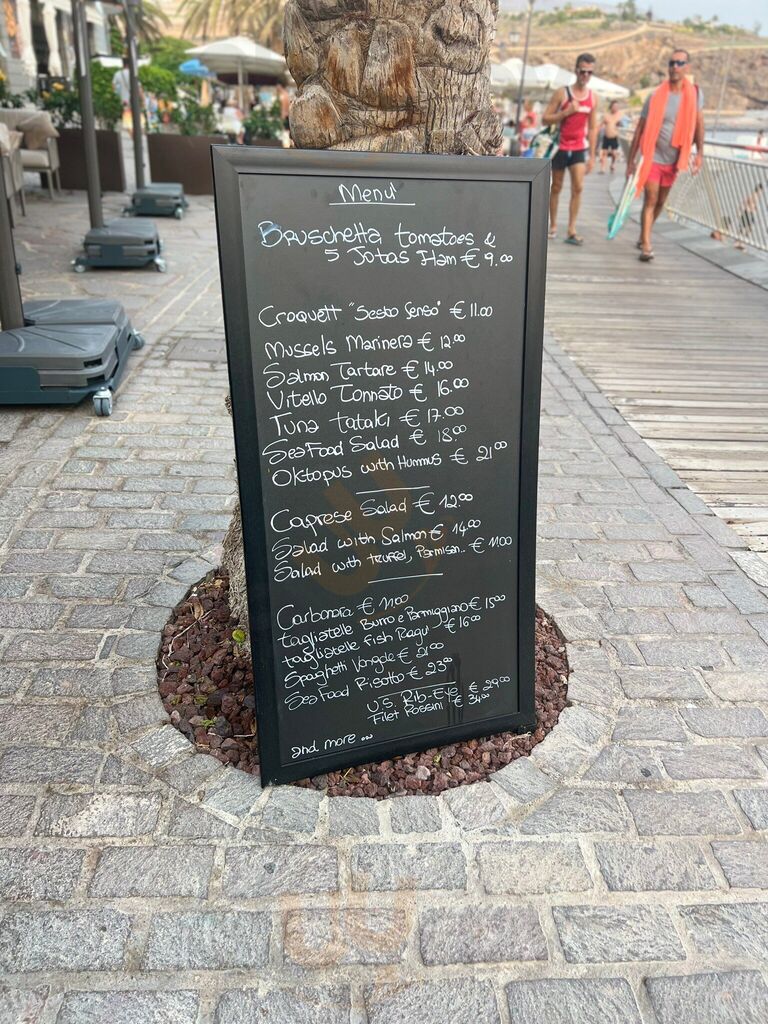 Menu'
Bruschetta tomatoes &
5 Jotas Ham € 9.00
Croquett "Sesto Senso" € 11.00
Mussels Marinera € 12.00
Salmon Tartare € 14.00
Vitello Tonnato € 16.00
Tuna tataki € 17.00
SeaFood Salad € 18.00
Oktopus with Hummus € 21.00
Caprese Salad € 12.00
Salad with Salmon € 14.00
Salad with truffel, Parmisan.. € 11.00
Carbonara € 11.00
tagliatelle Burro e Parmiggiano € 15.00
tagliatelle Fish Ragu' € 16.00
Spaghetti Vongole € 21.00
Sea Food Risotto € 23.00
U.S. Rib-Eye € 29.00
Filet Rossini € 34.00
and more ...